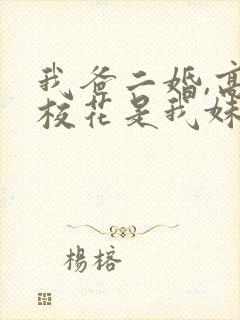 我爸二婚,高
校花是我妹
楊榕